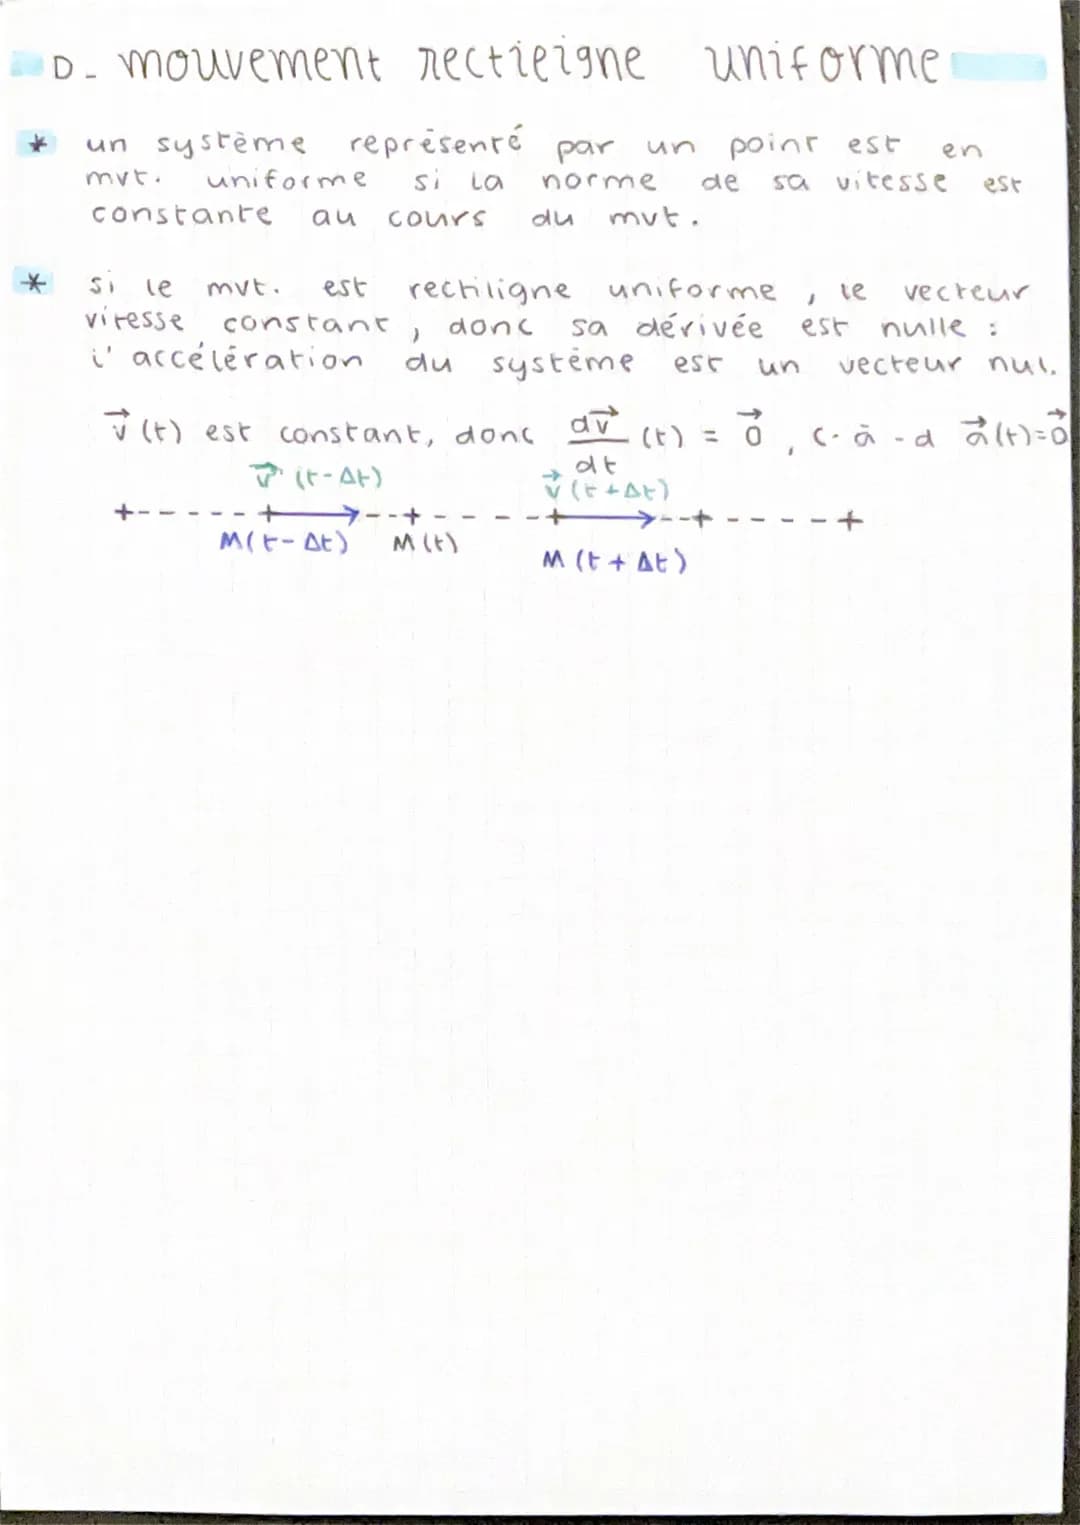 D- mouvement rectiligne uniforme
* un système représenté par un point est en
mvt. uniforme si la norme de sa vitesse est
constante au cours du mvt.
* si le mvt. est rectiligne uniforme, le vecteur
vitesse constant, donc sa dérivée est nulle :
l'accélération du système est un vecteur nul.
v⃗(t) est constant, donc dv⃗/dt (t) = 0⃗, c-à-d a⃗(t)=0⃗
v⃗ (t-Δt) v⃗ (t+Δt)
M(t-Δt) M(t) M(t+Δt)